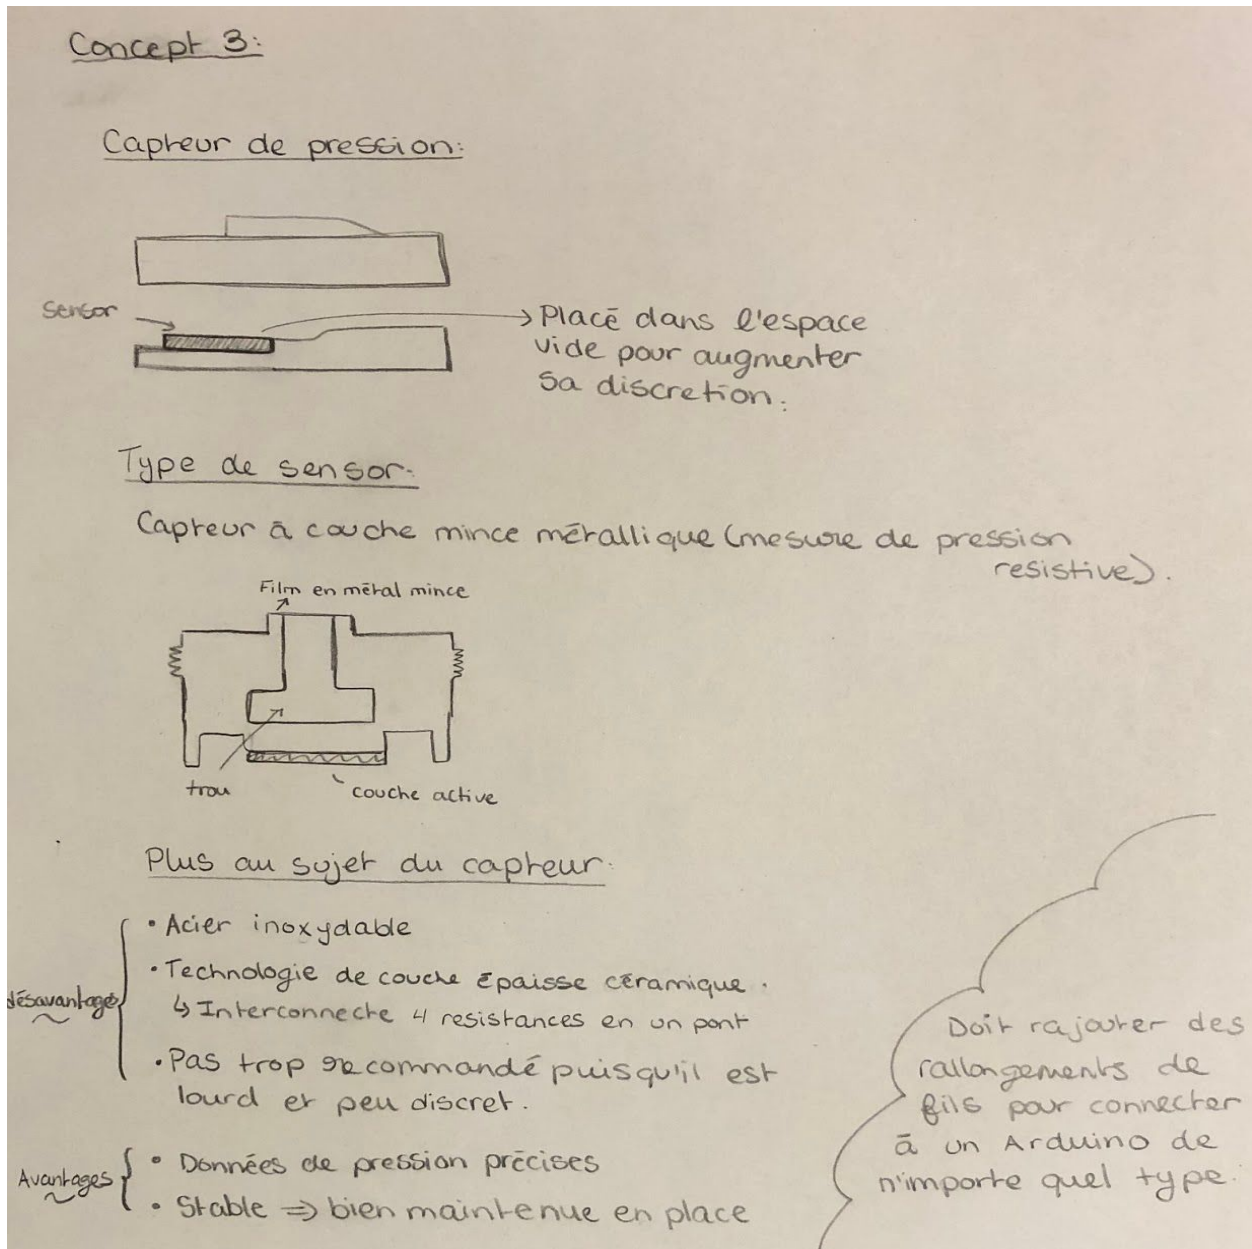 Concept 3:
Capteur de pression:
Sensor
Placé dans l'espace
vide pour augmenter
sa discretion.
Type de sensor.
Capteur à couche mince métallique (mesure de pression
resistive).
Film en métal mince
trou
couche active
Plus au sujet du capteur.
désavantages
• Acier inoxydable
• Technologie de couche épaisse céramique.
↳ Interconnecte 4 resistances en un pont
• Pas trop recommandé puisqu'il est
lourd et peu discret.
Avantages
• Données de pression précises
• Stable ⇒ bien maintenue en place
Doit rajouter des
rallongements de
fils pour connecter
à un Arduino de
n'importe quel type.